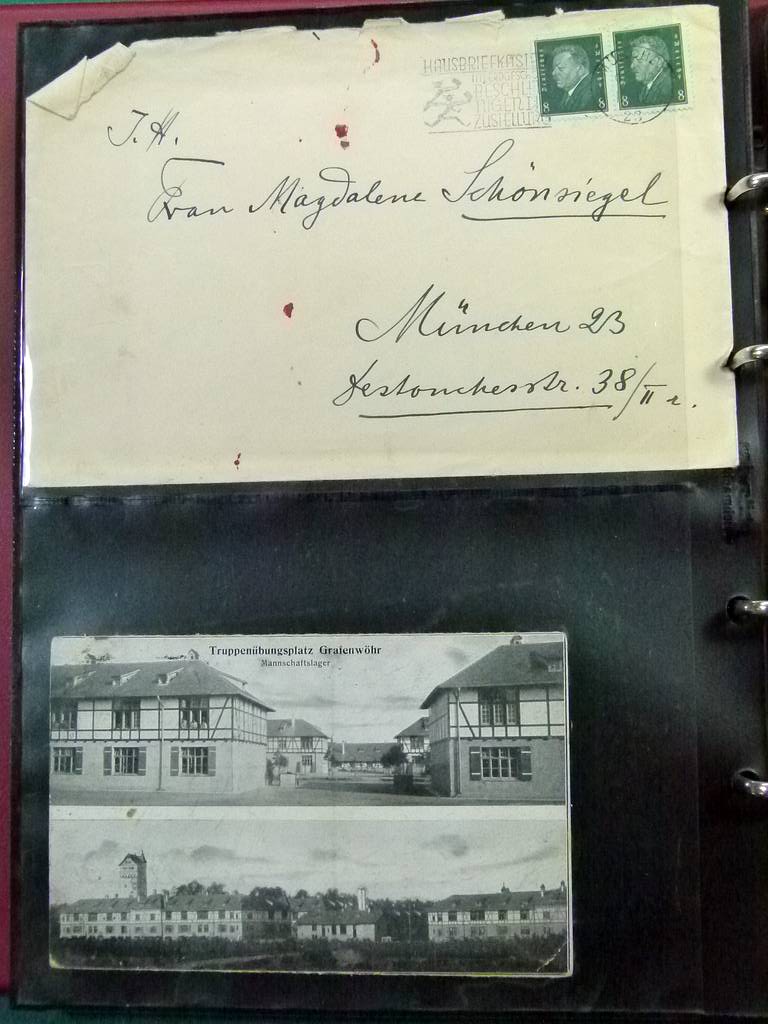 HAUSBRIEFKASTE
BESCHLEU
NIGEN DI
ZUSTELLUNG
8 8
8 8
J. H.
Frau Magdalene Schönsiegel
München 23
Destouchesstr. 38/II r.
Truppenübungsplatz Grafenwöhr
Mannschaftslager